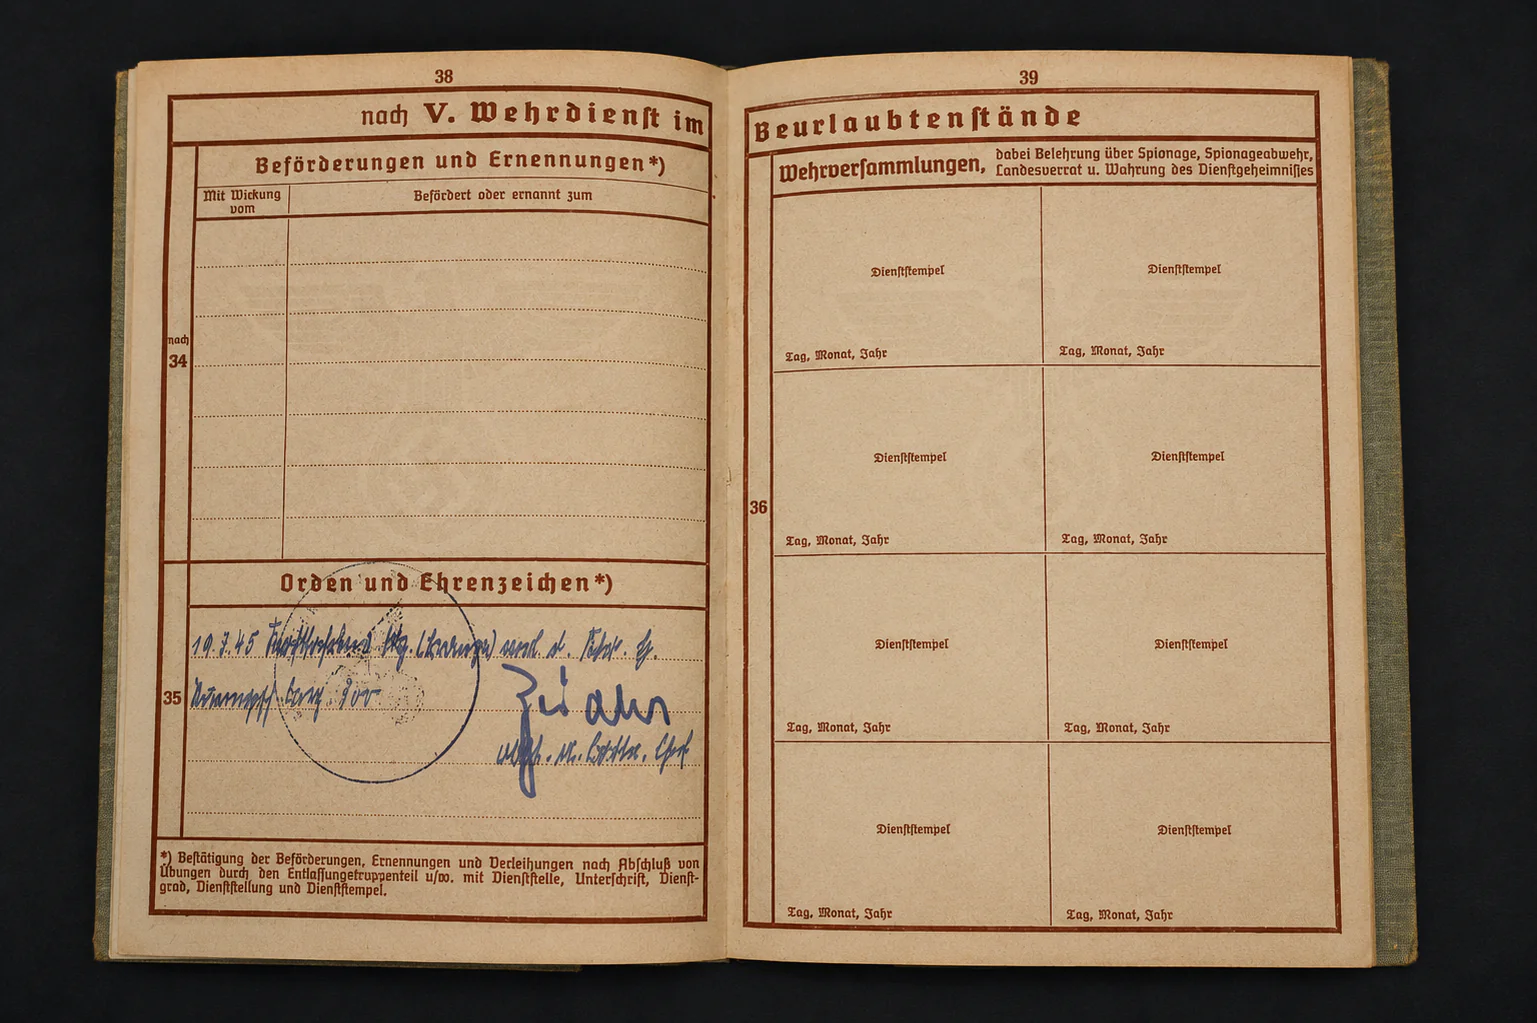 38
nach V. Wehrdienst im
Beförderungen und Ernennungen*)
Mit Wirkung
vom
Befördert oder ernannt zum
nach
34
Orden und Ehrenzeichen*)
35
*) Bestätigung der Beförderungen, Ernennungen und Verleihungen nach Abschluß von
Übungen durch den Entlassungstruppenteil usw. mit Dienststelle, Unterschrift, Dienst-
grad, Dienststellung und Dienststempel.
39
Beurlaubtenstände
Wehrversammlungen,
dabei Belehrung über Spionage, Spionageabwehr,
Landesverrat u. Wahrung des Dienstgeheimnisses
36
Dienststempel
Dienststempel
Tag, Monat, Jahr
Tag, Monat, Jahr
Dienststempel
Dienststempel
Tag, Monat, Jahr
Tag, Monat, Jahr
Dienststempel
Dienststempel
Tag, Monat, Jahr
Tag, Monat, Jahr
Dienststempel
Dienststempel
Tag, Monat, Jahr
Tag, Monat, Jahr